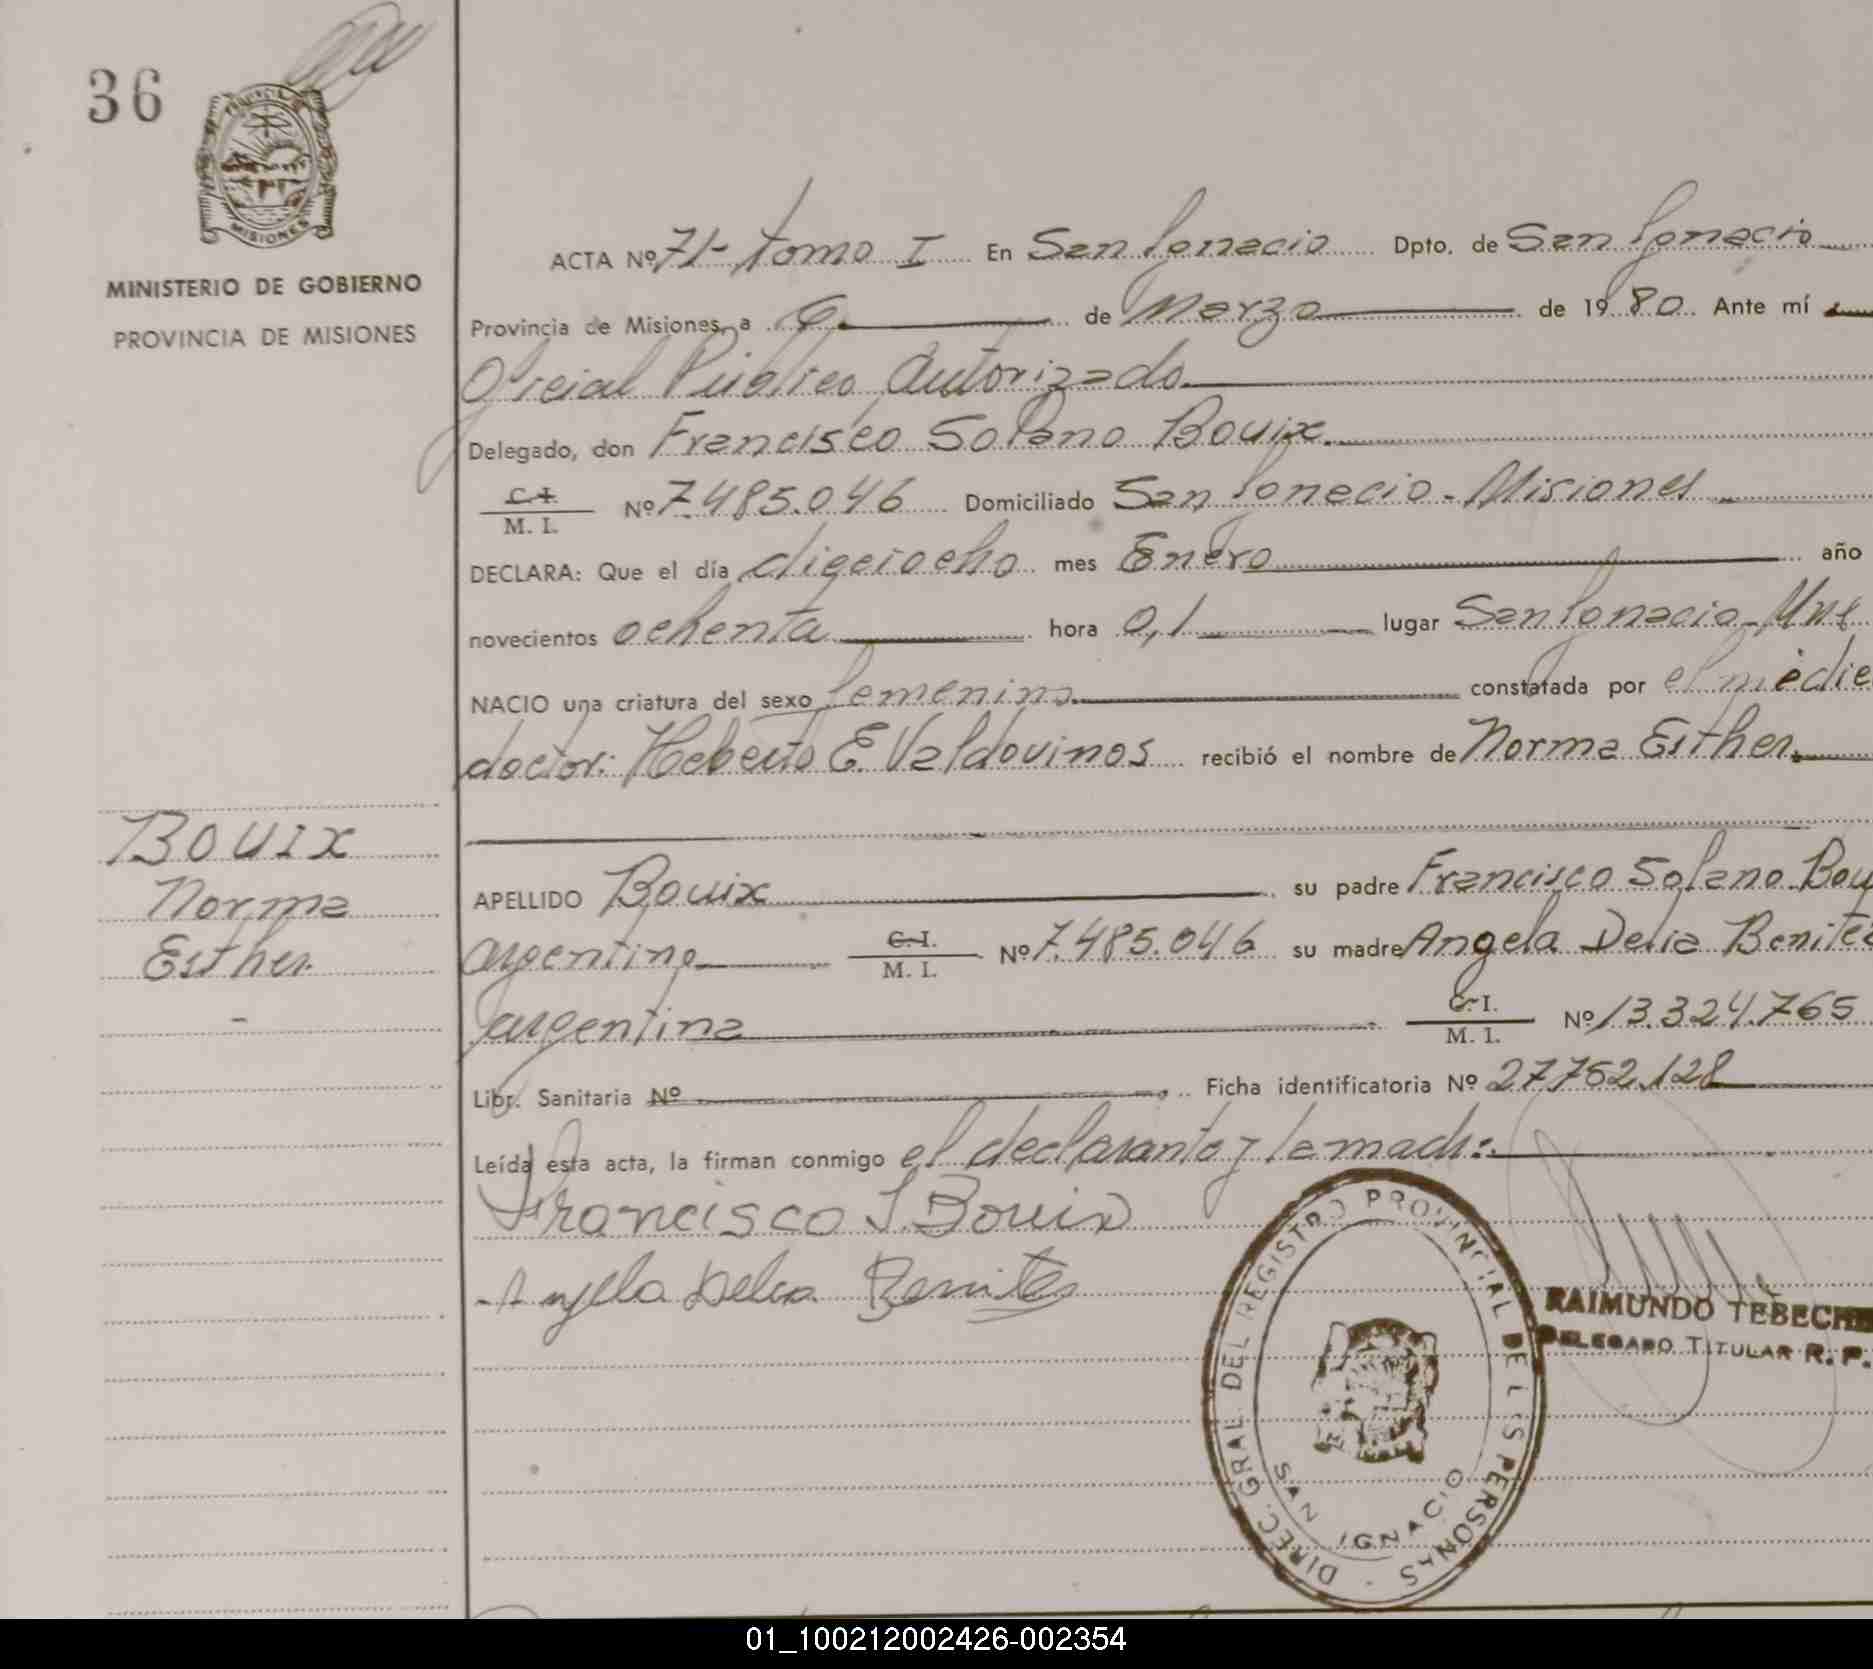 36
PROVINCIA DE MISIONES
MINISTERIO DE GOBIERNO
PROVINCIA DE MISIONES
ACTA Nº 71- tomo I En San Ignacio Dpto. de San Ignacio
Provincia de Misiones, a de Marzo de 1980. Ante mí
Oficial Público Autorizado
Delegado, don Francisco Solano Bouix.
C.I.
M. I. Nº 7.485.046 Domiciliado San Ignacio - Misiones
DECLARA: Que el día dieciocho mes Enero año
novecientos ochenta hora 0,1 lugar San Ignacio - Mnes
NACIO una criatura del sexo femenino constatada por el médic
doctor: Heberto E. Valdovinos recibió el nombre de Norma Esther.
BOUIX
Norma
Esther.
APELLIDO Bouix su padre Francisco Solano Bou
argentino C.I.
M. I. Nº 7.485.046 su madre Angela Delia Benitez
argentina C.I.
M. I. Nº 13.324.765
Libr. Sanitaria Nº Ficha identificatoria Nº 27.752.128
Leída esta acta, la firman conmigo el declarante y la madre:
Francisco S. Bouix
Angela Delia Benitez
DIREC. GRAL DEL REGISTRO PROVINCIAL DE LAS PERSONAS -
SAN IGNACIO
RAIMUNDO TEBECHE
DELEGADO TITULAR R. P.
01_100212002426-002354